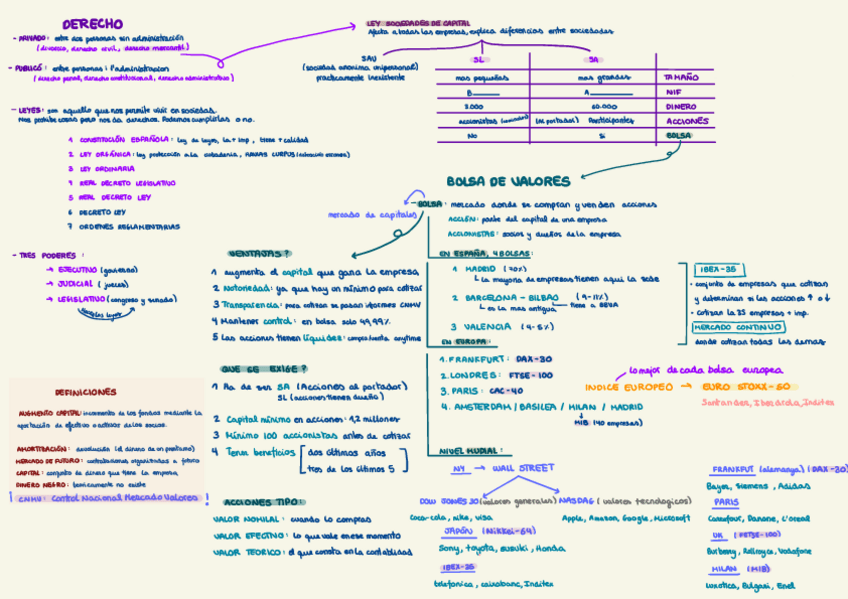 DERECHO
- PRIVADO: entre dos personas sin administración
(divorcio, derecho civil, derecho mercantil)
- PUBLICO: entre personas i l'administracion
(derecho penal, derecho constitucional, derecho administrativo)
- LEYES: son aquello que nos permite vivir en sociedad.
Nos prohibe cosas pero nos da derechos. Podemos cumplirlas o no.
1 CONSTITUCIÓN ESPAÑOLA: ley de leyes, la + imp, tiene + calidad
2 LEY ORGÁNICA: ley protección a la ciudadania, HAVIAS CURPUS
3 LEY ORDINARIA
4 REAL DECRETO LEGISLATIVO
5 REAL DECRETO LEY
6 DECRETO LEY
7 ORDENES REGLAMENTARIAS
- TRES PODERES:
→ EJECUTIVO (govierno)
→ JUDICIAL (jueces)
→ LEGISLATIVO (congreso y senado)
LEY SOCIEDADES DE CAPITAL
Afecta a todas las empresas, explica diferencias entre sociedades
SAU
(sociedad anonima unipersonal)
practicamente inexistente
SL SA
mas pequeñas mas grandes TAMAÑO
B A NIF
3.000 60.000 DINERO
accionistas (al portador) Participantes ACCIONES
No Si BOLSA
BOLSA DE VALORES
mercado de capitales
- BOLSA: mercado donde se compran y venden acciones
ACCIÓN: parte del capital de una empresa
ACCIONISTAS: socios y dueños de la empresa
VENTAJAS?
1 augmenta el capital que gana la empresa
2 Notoriedad: ya que hay un mínimo para cotizar
3 Transparencia: para cotizar se pasan informes CNMV
4 Mantener control: en bolsa solo 49,99%
5 Las acciones tienen líquides: compra/venta anytime
QUE SE EXIGE?
1 Ha de ser SA (Acciones al portador)
SL (acciones tienen dueño)
2 Capital mínimo en acciones: 1,2 millones
3 Mínimo 100 accionistas antes de cotizar
4 Tener beneficios dos últimos años
tres de los últimos 5
ACCIONES TIPO:
VALOR NOMINAL: cuando lo compras
VALOR EFECTIVO: lo que vale en ese momento
VALOR TEORICO: el que consta en la contabilidad
EN ESPAÑA, 4 BOLSAS:
1 MADRID (90%)
La mayoria de empresas tienen aqui la sede
2 BARCELONA - BILBAO (9-11%)
es la mas antigua
tiene a BBVA
3 VALENCIA (4-5%)
IBEX-35
· conjunto de empresas que cotizan
y determinan si las acciones ↑ o ↓
· cotizan la 35 empresas + imp.
MERCADO CONTINUO
donde cotizan todas las demas
EN EUROPA:
1. FRANKFURT: DAX-30
2. LONDRES: FTSE-100
3. PARIS: CAC-40
4. AMSTERDAM / BASILEA / MILAN / MADRID
MIB (40 empresas)
lo mejor de cada bolsa europea
INDICE EUROPEO → EURO STOXX-50
Santander, Iberdrola, Inditex
NIVEL MUDIAL:
NY → WALL STREET
DOW JONES 30 (valores generales)
Coca-cola, nike, visa
NASDAQ (valores tecnologicos)
Apple, Amazon, Google, Microsoft
JAPÓN (Nikkei-64)
Sony, toyota, suzuki, Honda
IBEX-35
telefonica, caixabanc, Inditex
FRANKFUT (alemanya) (DAX-30)
Bayer, Siemens, Adidas
PARIS
Carrefour, Danone, L'oreal
UK (FETSE-100)
Burberry, Rollroyce, Vodafone
MILAN (MIB)
Luxotica, Bulgari, Enel
DEFINICIONES
AUGMENTO CAPITAL: incremento de los fondos mediante la
aportación de efectivo o activos de los socios.
AMORTIZACIÓN: devolución (el dinero de un prestamo)
MERCADO DE FUTURO: contrataciones organizadas a futuro
CAPITAL: conjunto de dinero que tiene la empresa
DINERO NEGRO: teoricamente no existe
¡CNMV: Control Nacional Mercado Valores!